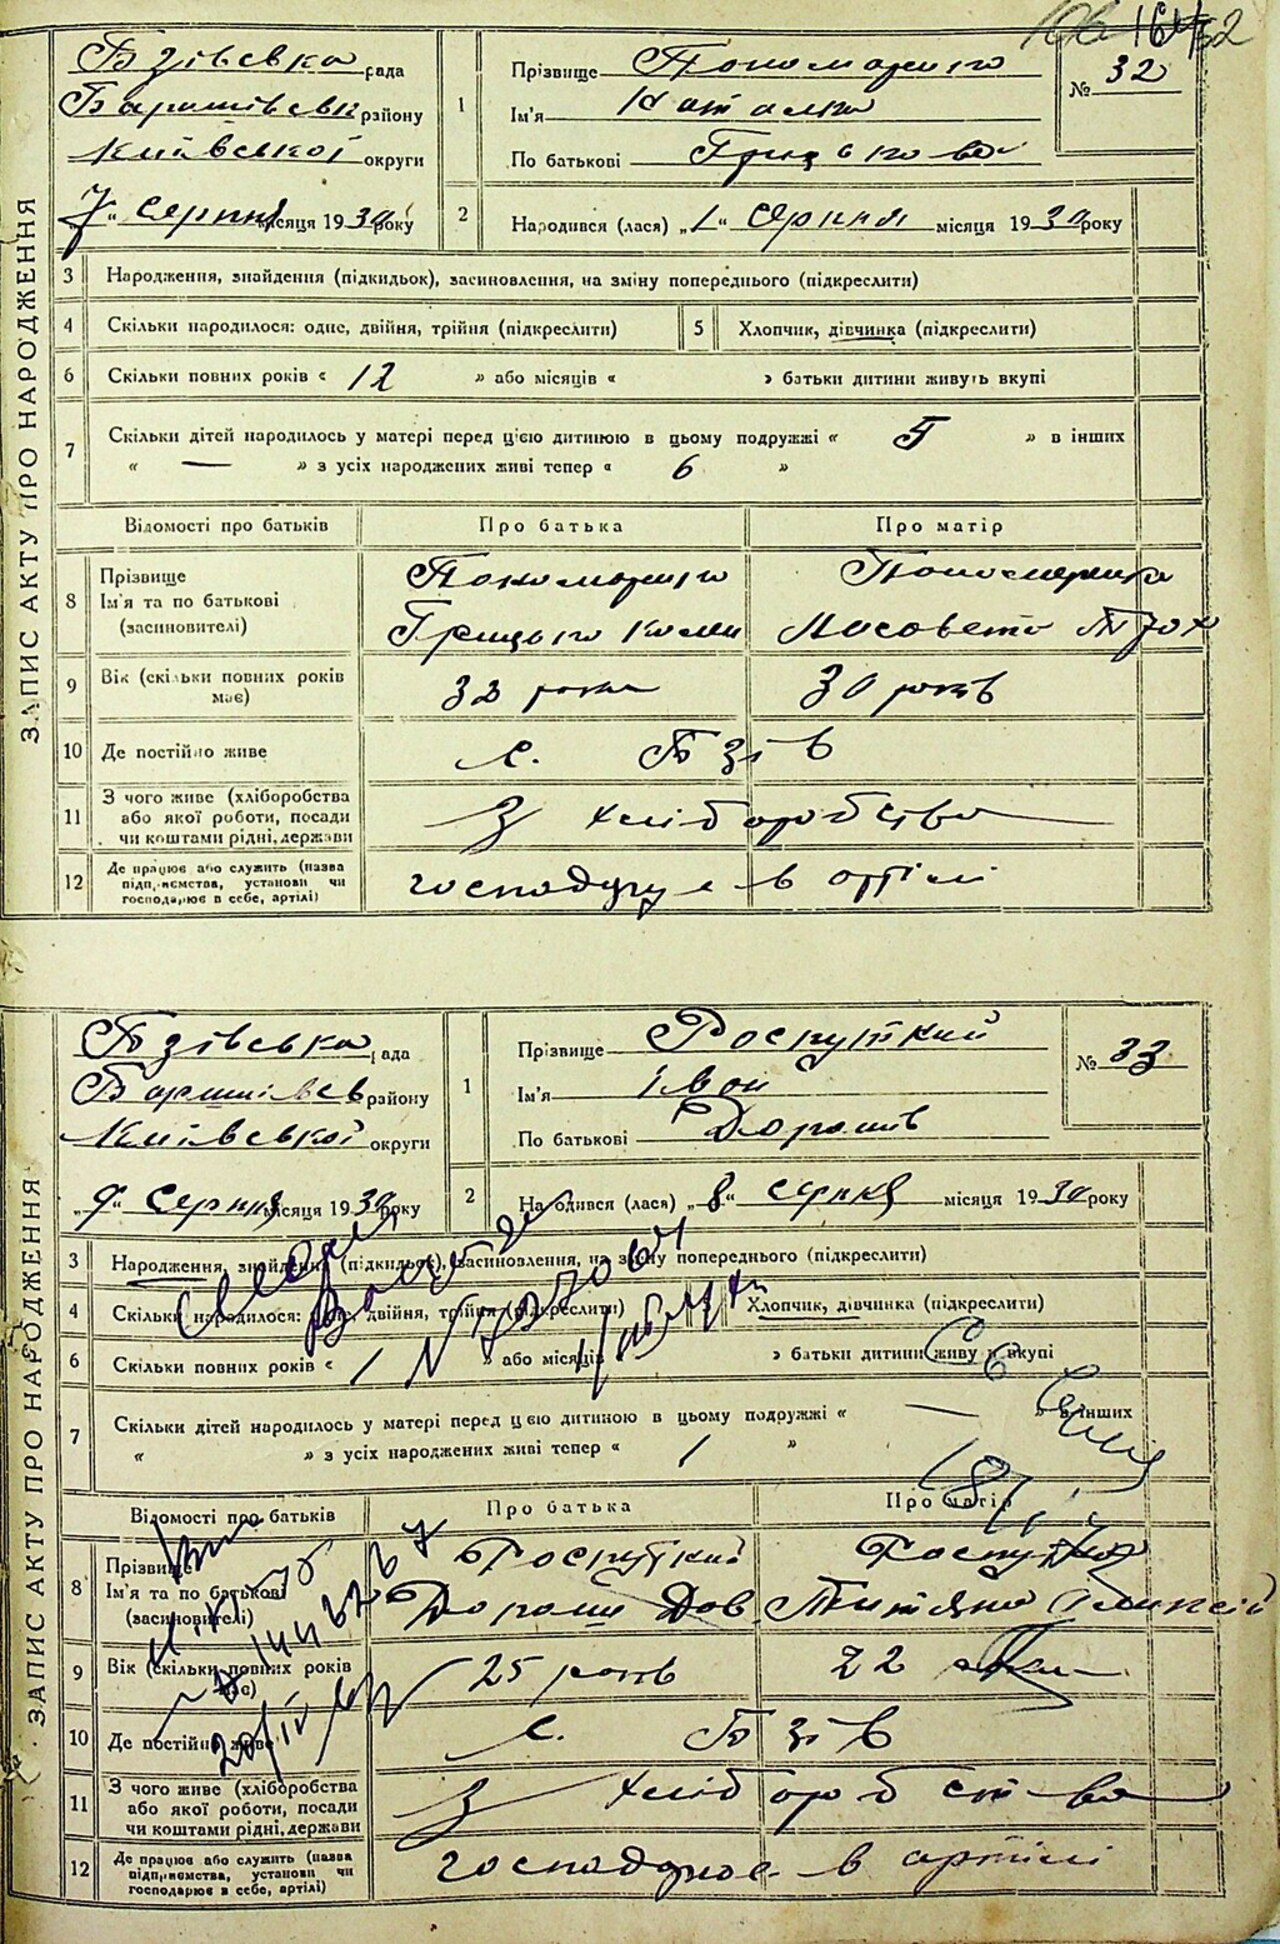 164
52
ЗАПИС АКТУ ПРО НАРОДЖЕННЯ
Бзівська рада
Баришівськ району
Київської округи
7 " серпня місяця 1930 року
1 Прізвище Пономаренко
Ім'я Наталка
По батькові Грицькова
№ 32
2 Народився (лася) „1" серпня місяця 1930 року
3 Народження, знайдення (підкидьок), засиновлення, на зміну попереднього (підкреслити)
4 Скільки народилося: одне, двійня, трійня (підкреслити) 5 Хлопчик, дівчинка (підкреслити)
6 Скільки повних років « 12 » або місяців « » батьки дитини живуть вкупі
7 Скільки дітей народилось у матері перед цією дитиною в цьому подружжі « 5 » в інших
« — » з усіх народжених живі тепер « 6 »
Відомості про батьків Про батька Про матір
8 Прізвище Пономаренко Пономаренко
Ім'я та по батькові Грицько
(засиновителі)
9 Вік (скільки повних років має) 32 роки 30 років
10 Де постійно живе с. Бзів
11 З чого живе (хліборобства або якої роботи, посади чи коштами рідні, держави З хліборобства
12 Де працює або служить (назва підприємства, установи чи господарює в себе, артілі) господарує в артілі
ЗАПИС АКТУ ПРО НАРОДЖЕННЯ
Бзівська рада
Баришівсь району
Київської округи
„9" серпня місяця 1930 року
1 Прізвище Роспуткий
Ім'я Іван
По батькові Дорошів
№ 33
2 Народився (лася) „8" серпня місяця 1930 року
3 Народження, знайдення (підкидьок), засиновлення, на зміну попереднього (підкреслити)
4 Скільки народилося: одне, двійня, трійня (підкреслити) 5 Хлопчик, дівчинка (підкреслити)
6 Скільки повних років « 1 » або місяців « » батьки дитини живуть вкупі
7 Скільки дітей народилось у матері перед цією дитиною в цьому подружжі « — » в інших
« » з усіх народжених живі тепер « 1 »
Відомості про батьків Про батька Про матір
8 Прізвище Роспуткий
Ім'я та по батькові Дорош
(засиновителі)
9 Вік (скільки повних років має) 25 років 22
10 Де постійно живе с. Бзів
11 З чого живе (хліборобства або якої роботи, посади чи коштами рідні, держави З хліборобства
12 Де працює або служить (назва підприємства, установи чи господарює в себе, артілі) господарює в артілі